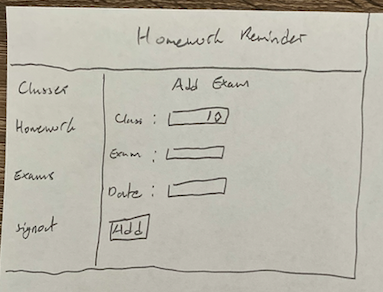 Homework Reminder
Classes
Homework
Exams
signout
Add Exam
Class : 10
Exam :
Date :
Add